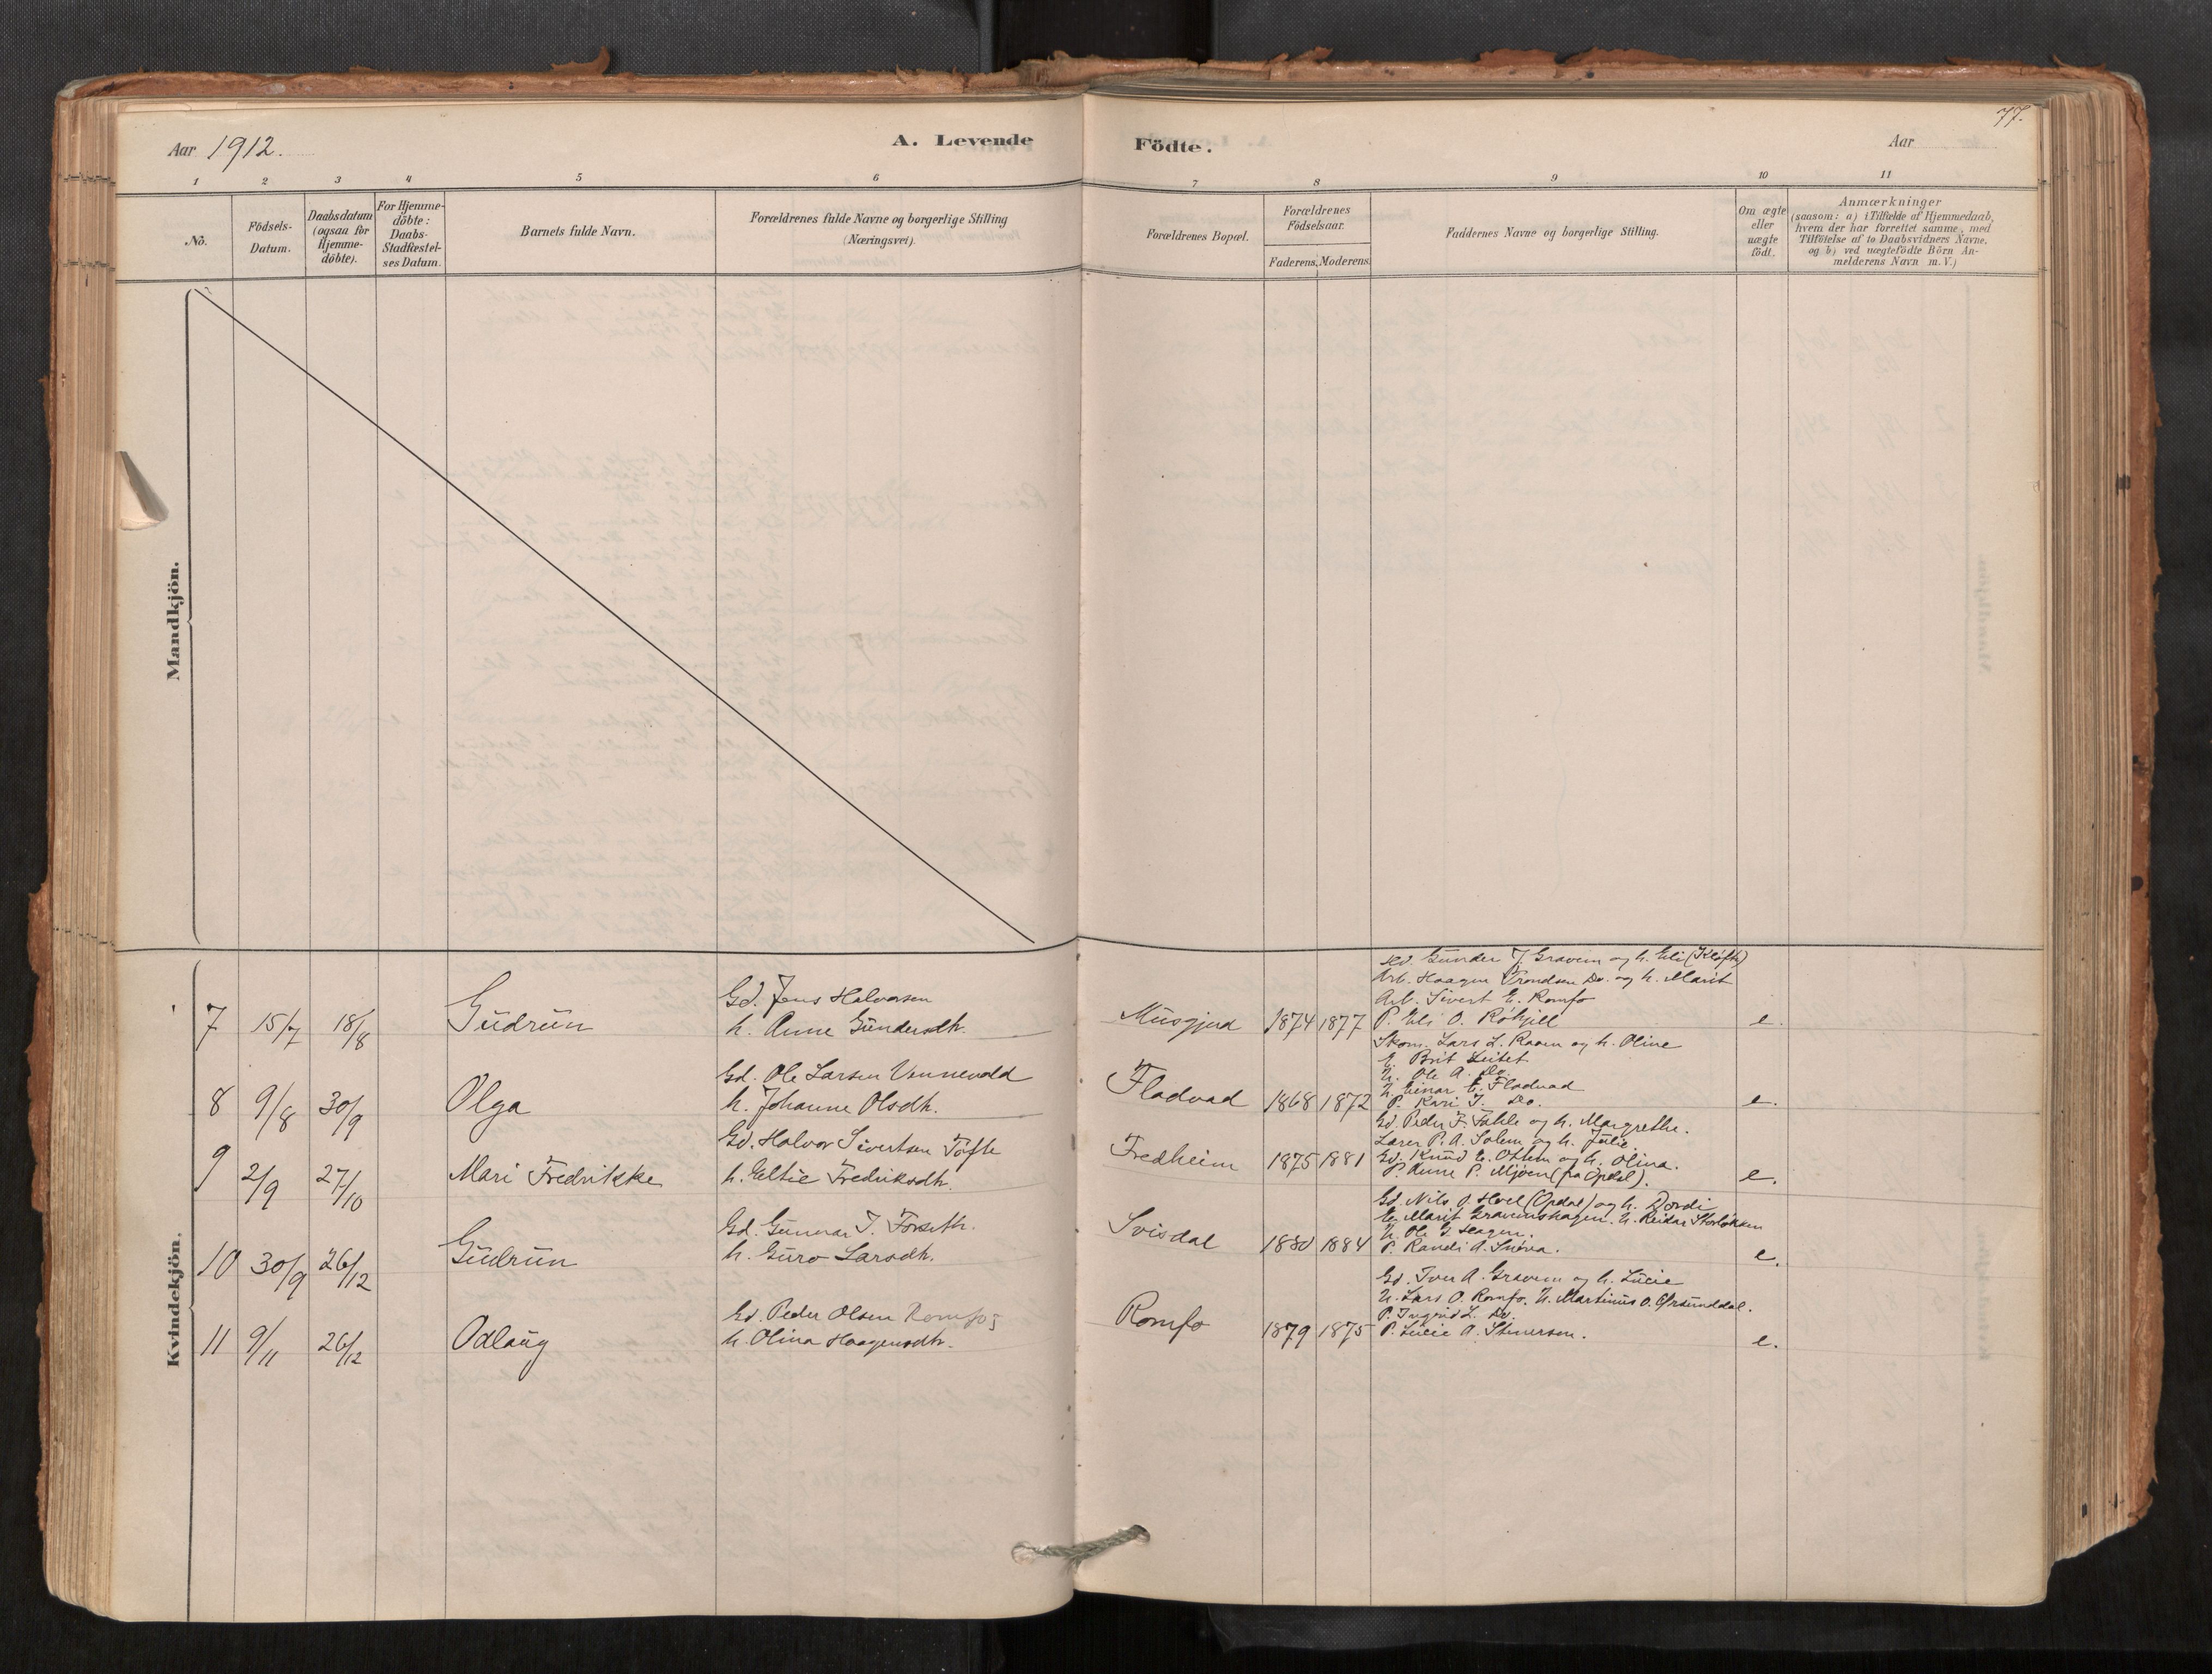 77.
Aar 1912.
A. Levende
Födte.
Aar
1 2 3 4 5 6 7 8 9 10 11
No.
Födsels-
Datum.
Daabsdatum
(ogsaa for
Hjemme-
döbte).
For Hjemme-
döbte:
Daabs-
Stadfæstel-
ses Datum.
Barnets fulde Navn.
Forældrenes fulde Navne og borgerlige Stilling
(Næringsvei).
Forældrenes Bopæl.
Forældrenes
Födselsaar.
Faderens. Moderens.
Faddernes Navne og borgerlige Stilling.
Om ægte
eller
uægte
födt.
Anmærkninger
(saasom: a) i Tilfælde af Hjemmedaab,
hvem der har forrettet samme, med
Tilföielse af to Daabsvidners Navne,
og b) ved uægtefödte Börn An-
melderens Navn m. V.)
Mandkjön.
Kvindekjön.
7 15/7 18/8 Gudrun
Gd. Jens Halvorsen
h. Anne Gundersdtr.
Musgjerd 1874 1877
Gd. Gunder J. Gravem og h. Eli (Kløfte)
Arb. Haagen Trondsen Do. og h. Marit
Arb. Sivert E. Romfo
P. Eli O. Røkjell
e.
8 9/8 30/9 Olga
Gd. Ole Larsen Vennevold
h. Johanne Olsdtr.
Fladvad 1868 1872
Skom. Lars L. Raaen og h. Oline
E. Brit Leitet
U. Ole A. Do.
U. Einar E. Fladvad
P. Kari J. Do.
e.
9 2/9 27/10 Mari Fredrikke
Gd. Halvor Sivertsen Tofte
h. Eltie Fredriksdtr.
Fredheim 1875 1881
Gd. Peder F. Fahle og h. Margrethe.
Lærer P. A. Solem og h. Julie.
Gd. Knud E. Ottem og h. Olina.
P. Anne P. Mjøen (fra Opdal).
e.
10 30/9 26/12 Gudrun
Gd. Gunnar I. Forseth.
h. Guro Larsdtr.
Svisdal 1880 1884
Gd. Nils O. Hoel (Opdal) og h. Dordi
E. Marit Gravemshagen. U. Reidar Storløkken
U. Ole G. Hagen.
P. Randi A. Snøva.
e.
11 9/11 26/12 Odlaug
Gd. Peder Olsen Romfog
h. Olina Haagensdtr.
Romfo 1879 1875
Gd. Iver A. Gravem og h. Lucie
U. Lars O. Romfo. U. Martinus O. Ørsunddal.
P. Ingrid L. Do.
P. Lucie A. Stenersen.
e.